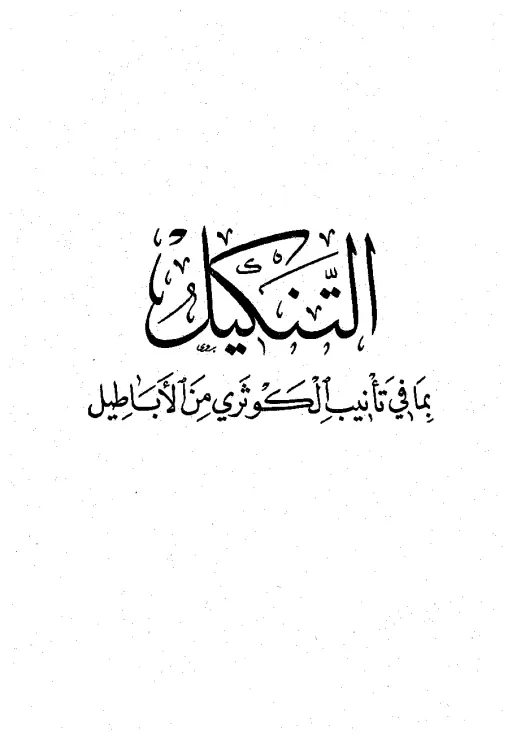 التَّنكيل
بِمَا في تَأنيبِ الْكَوثَري مِنَ الأَبَاطِيل